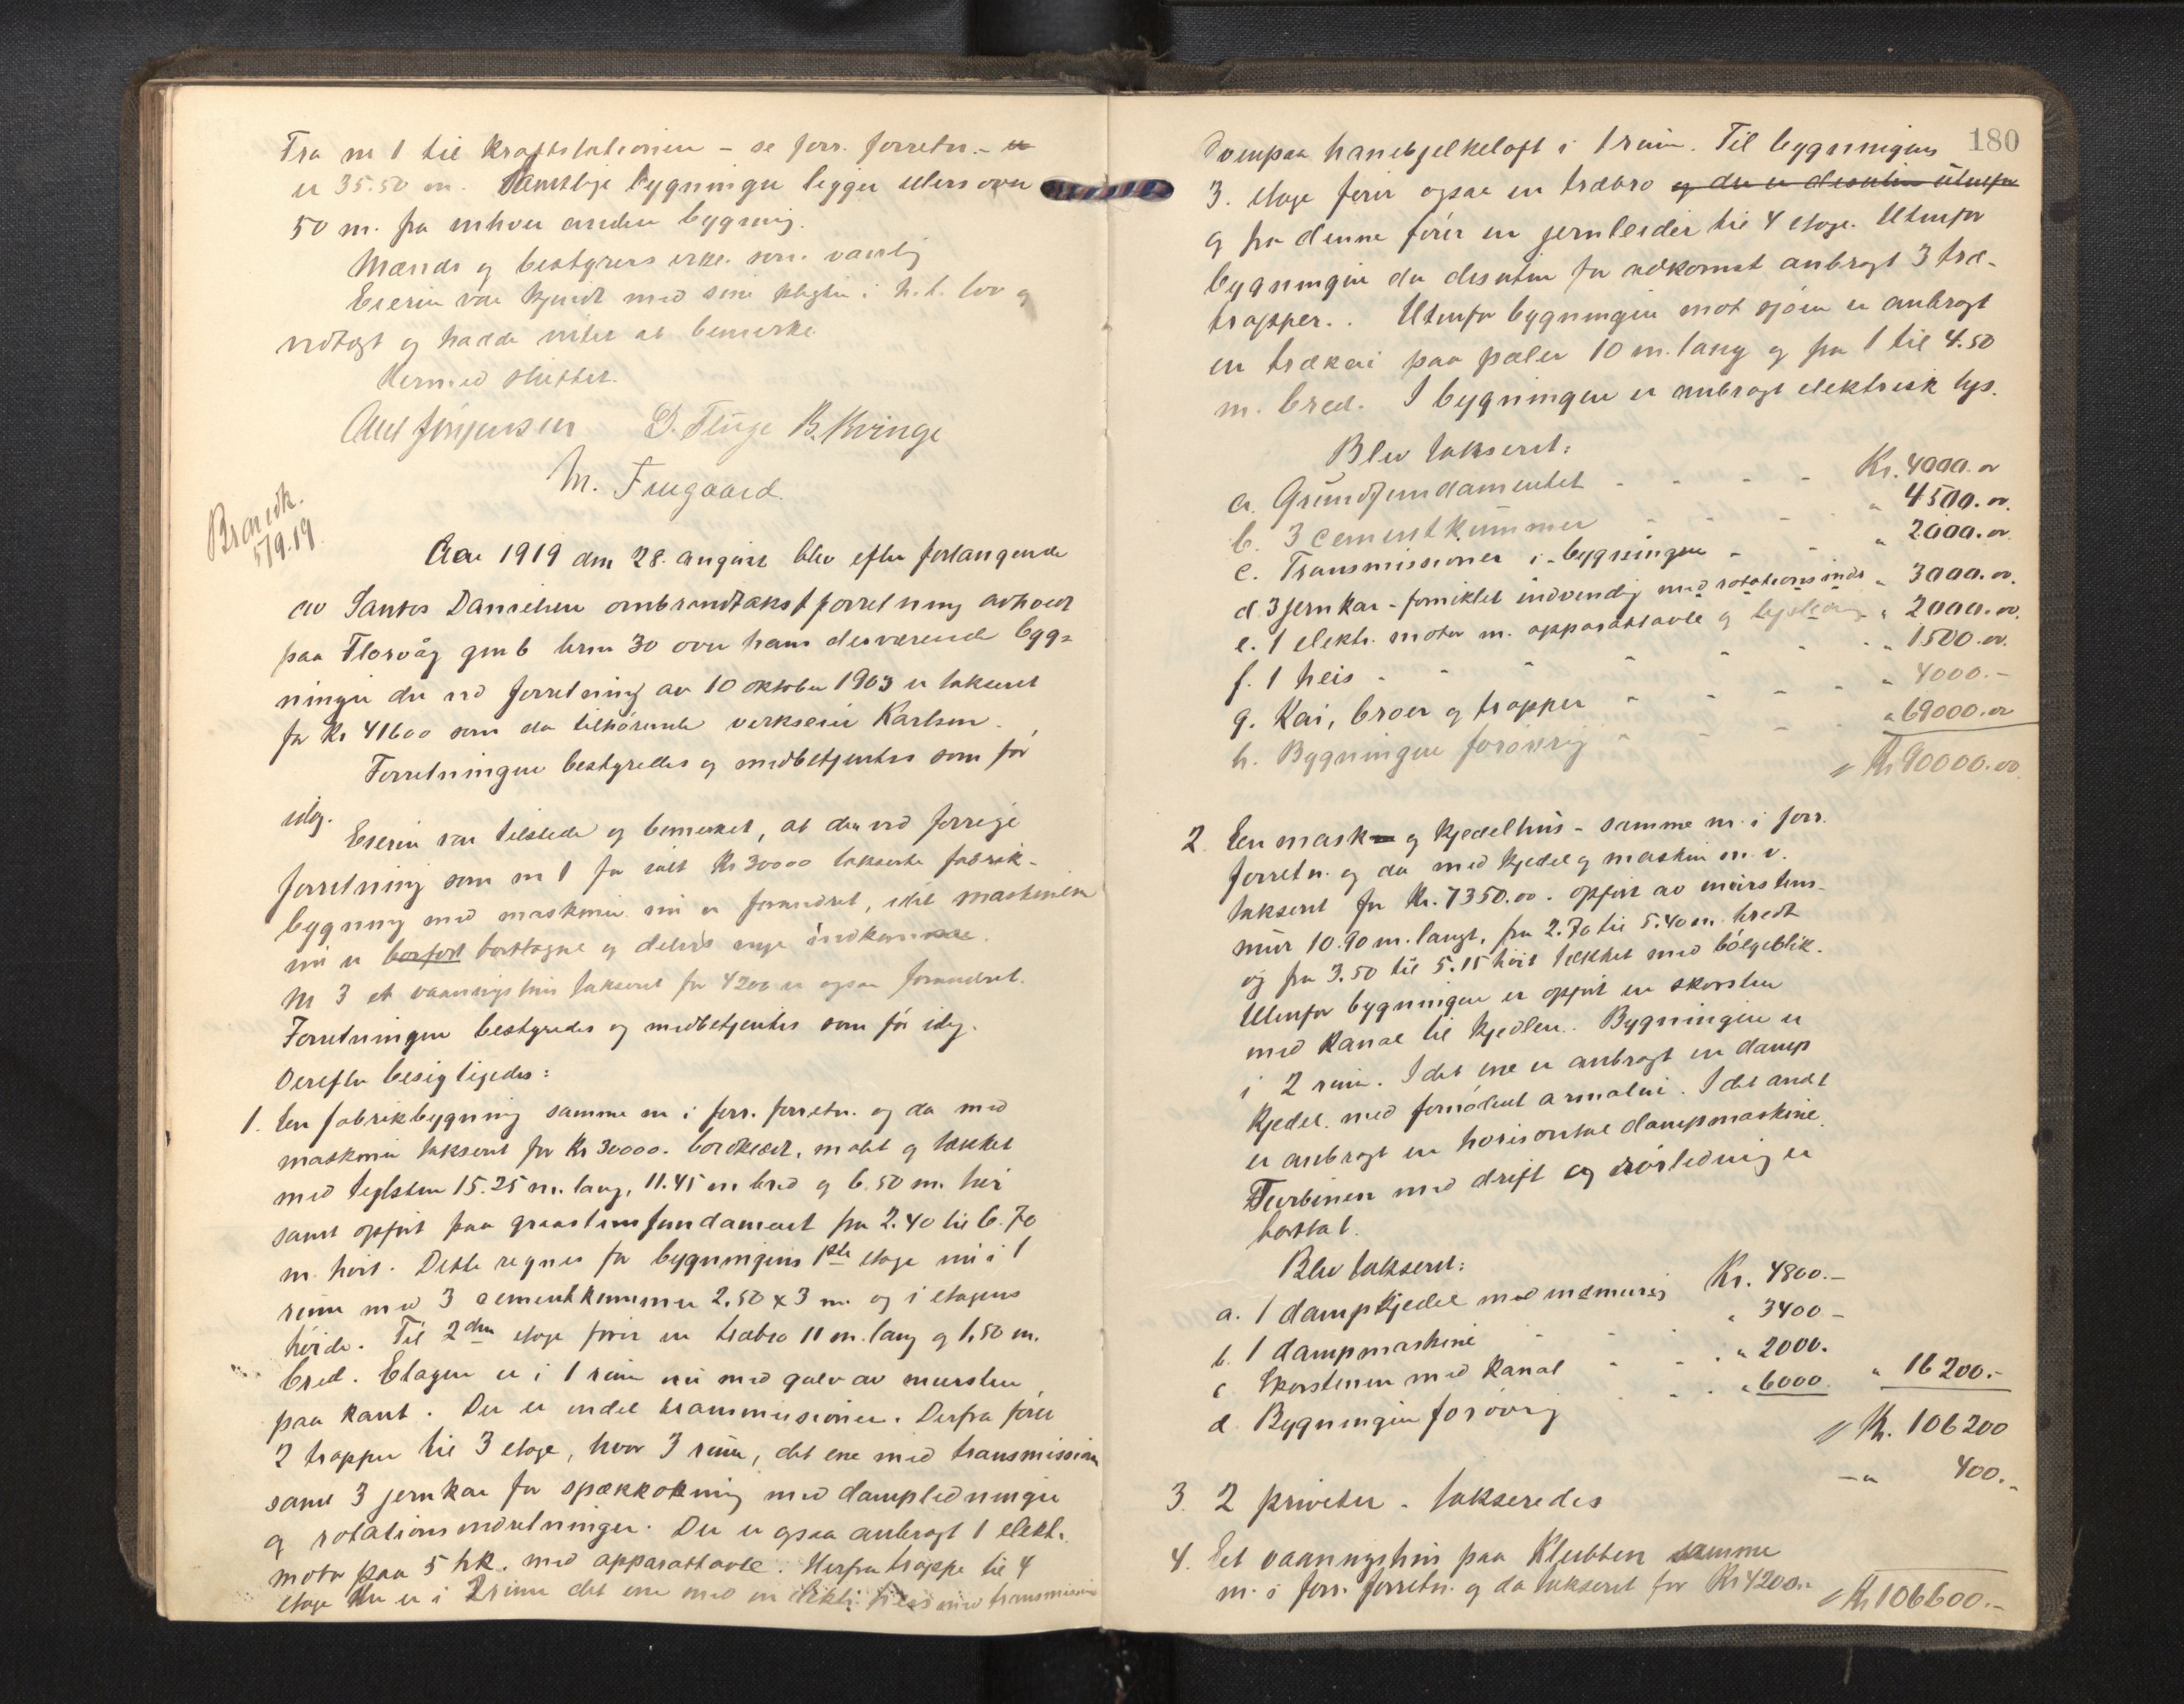 Fra nr 1 til kraftstationen - se forr. forretn. - er
er 35.50 m. Samtlige bygninger ligger ellers over
50 m. fra enhver anden bygning.
Mænds og bestyrers erkl. som vanlig
Eieren var kjendt med sine pligter i h.t. lov og
vedtægt og hadde intet at bemerke
Hermed sluttet.
Axel Jørgensen D. Fluge B. Kvinge
M. Fuugaard.
Brandk.
5/9.19.
Aar 1919 den 28. august blev efter forlangende
av Santos Danielsen ombrandtakstforretning avholdt
paa Florvåg gnr 6 brnr 30 over hans derværende byg=
ninger der ved forretning av 10 oktober 1903 er takseret
for Kr 41600 som da tilhörende verkseier Karlsen.
Forretningen bestyredes og medbetjentes som för
idg.
Eieren var tilstede og bemerket, at den ved forrige
forretning som nr 1 for ialt Kr 30000 takserte fabrik-
bygning med maskiner nu er forandret, idet maskinene
nu er borfört borttagne og delvis nye indkomne.
Nr 3 et vaaningshus takseret for 4200 er ogsaa forandret.
Forretningen bestyredes og medbetjentes som för idg.
Derefter besigtigedes:
1. En fabrikbygning samme nr i forr. forretn. og da med
maskiner takseret for Kr 30000. bordklædt, malt og tækket
med teglsten 15.25 m. lang, 11.45 m bred og 6.50 m. höi
samt opfört paa graastensfundament fra 2.40 til 6.70
m. höit. Dette regnes for bygningens 1ste etage nu i 1
rum med 3 cementkummer 2.50 x 3 m. og i etagens
höide. Til 2den etage förer en træbro 11 m. lang og 1.50 m.
bred. Etagen er i 1 rum nu med gulv av mursten
paa kant. Der er endel transmissioner. Derfra förer
2 trapper til 3 etage, hvor 3 rum, det ene med transmission
samt 3 jernkar for spækkokning med dampledninger
og rotationsindretninger. Der er ogsaa anbragt 1 elektr.
motor paa 5 hk. med apparattavle. Herfra trappe til 4
etage der er i 2 rum det ene med en elektr. heis med transmission
180
Ovenpaa hanebjelkeloft i 1 rum. Til bygningens
3. etage förer ogsaa en træbro og der er desuten utenfor
og fra denne förer en jernleider til 4 etage. Utenfor
bygningen der desuten for adkomst anbragt 3 træ-
trapper.. Utenfor bygningen mot sjöen er anbragt
en trækai paa pæler 10 m. lang og fra 1 til 4.50
m. bred. I bygningen er anbragt elektrisk lys.
Blev takseret:
a. Grundfundamentet - - - - Kr. 4000.00
b. 3 cementkummer - - - - " 4500.00.
c. Transmissioner i bygningen - - " 2000.00.
d. 3 jernkar - forniklet indvendig med rotationsindr " 3000.00.
e. 1 elektr. motor m. apparattavle og lysledning " 2000.00.
f. 1 heis - - - - - - " 1500.00.
g. Kai, broer og trapper - - - - - " 4000.-
h. Bygningen forövrig - - - - " 69000.00
// Kr 90000.00
2. En mask - og kjedelhus - samme nr. i forr.
forretn. og da med kjedel og maskin m. v.
takseret for Kr. 7350.00. opfört av murstens-
mur 10.90 m. langt, fra 2.70 til 5.40 m. bredt
og fra 3.50 til 5.15 höit tækket med bölgeblik.
Utenfor bygningen er opfört en skorsten
med kanal til kjedlen.. Bygningen er
i 2 rum. I det ene er anbragt en damp
kjedel med fornödent armatur. I det andt
er anbragt en horisontal dampmaskine.
Turbinen med drift og rörledning er
borttat.
Blev takseret:
a. 1 dampkjedel med indmuring Kr. 4800.-
b. 1 dampmaskine - - " 3400 -
c Skorstenen med kanal - - . " 2000.
d. Bygningen forövrig - - . " 6000. " 16200.-
// Kr. 106200
3. 2 priveter - takseredes — " 400.-
4. Et vaaningshus paa Klubben samme
nr. i forr. forretn. og da takseret for Kr 4200.-
// Kr 106600.-